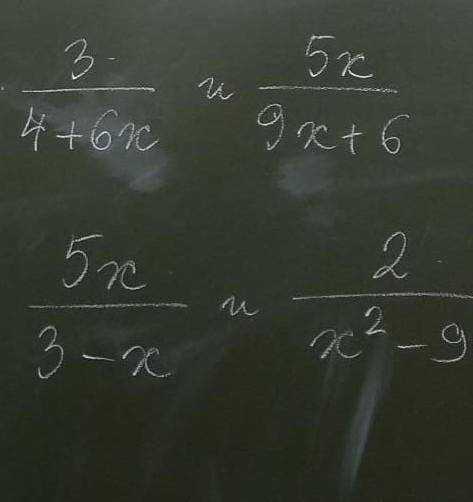 3/(4+6x) и 5x/(9x+6)
5x/(3-x) и 2/(x²-9)